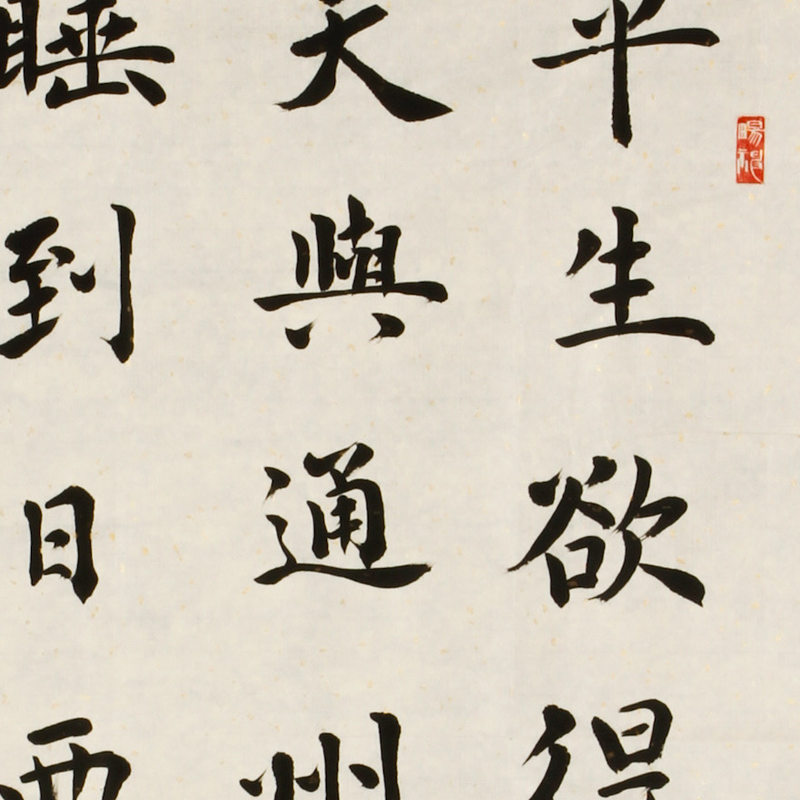 平生欲得
天與通州
睡到日西